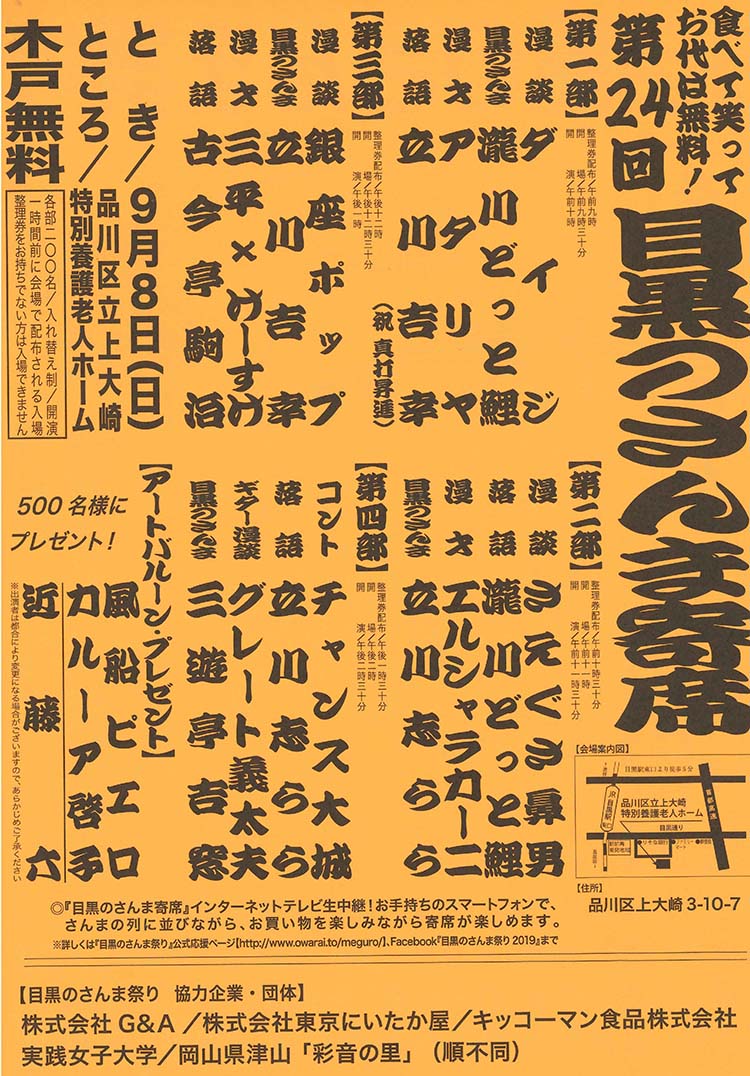 食べて笑って
お代は無料！
第24回
目黒のさんま寄席
【第一部】
整理券配布／午前九時
開　場／午前九時三十分
開　演／午前十時
漫談　ダイジ
目黒のさんま　瀧川どっと鯉
漫才　アタリヤ
落語　立川吉幸
（祝 真打昇進）
【第二部】
整理券配布／午前十時三十分
開　場／午前十一時
開　演／午前十一時三十分
漫談　さえぐさ鼻男
落語　瀧川どっと鯉
漫才　エルシャラカーニ
目黒のさんま　立川志らら
【第三部】
整理券配布／午後十二時
開　場／午後十二時三十分
開　演／午後一時
漫談　銀座ポップ
目黒のさんま　立川吉幸
漫才　三平×けーすけ
落語　古今亭駒治
【第四部】
整理券配布／午後一時
開　場／午後一時三十分
開　演／午後二時
コント　チャンス大城
落語　立川志らら
ギター漫談　グレート義太夫
目黒のさんま　三遊亭吉窓
とき／9月8日（日）
ところ／品川区立上大崎
特別養護老人ホーム
木戸無料
各部二〇〇名／入れ替え制／開演
一時間前に会場で配布される入場
整理券をお持ちでない方は入場できません
【アートバルーン・プレゼント】
風船ピエロ
カルーア啓子
近藤六
500名様に
プレゼント！
※出演者は都合により変更になる場合がございますので、あらかじめご了承ください
【会場案内図】
目黒駅東口より徒歩5分
JR目黒駅
品川区立上大崎
特別養護老人ホーム
目黒通り
首都高速
りそな銀行
ファミリーマート
【住所】
品川区上大崎3-10-7
◎『目黒のさんま寄席』インターネットテレビ生中継！お手持ちのスマートフォンで、
さんまの列に並びながら、お買い物を楽しみながら寄席が楽しめます。
※詳しくは『目黒のさんま祭り』公式応援ページ【http://www.owarai.to/meguro/】、Facebook『目黒のさんま祭り2019』まで
【目黒のさんま祭り　協力企業・団体】
株式会社 G&A ／株式会社東京にいたか屋／キッコーマン食品株式会社
実践女子大学／岡山県津山「彩音の里」（順不同）